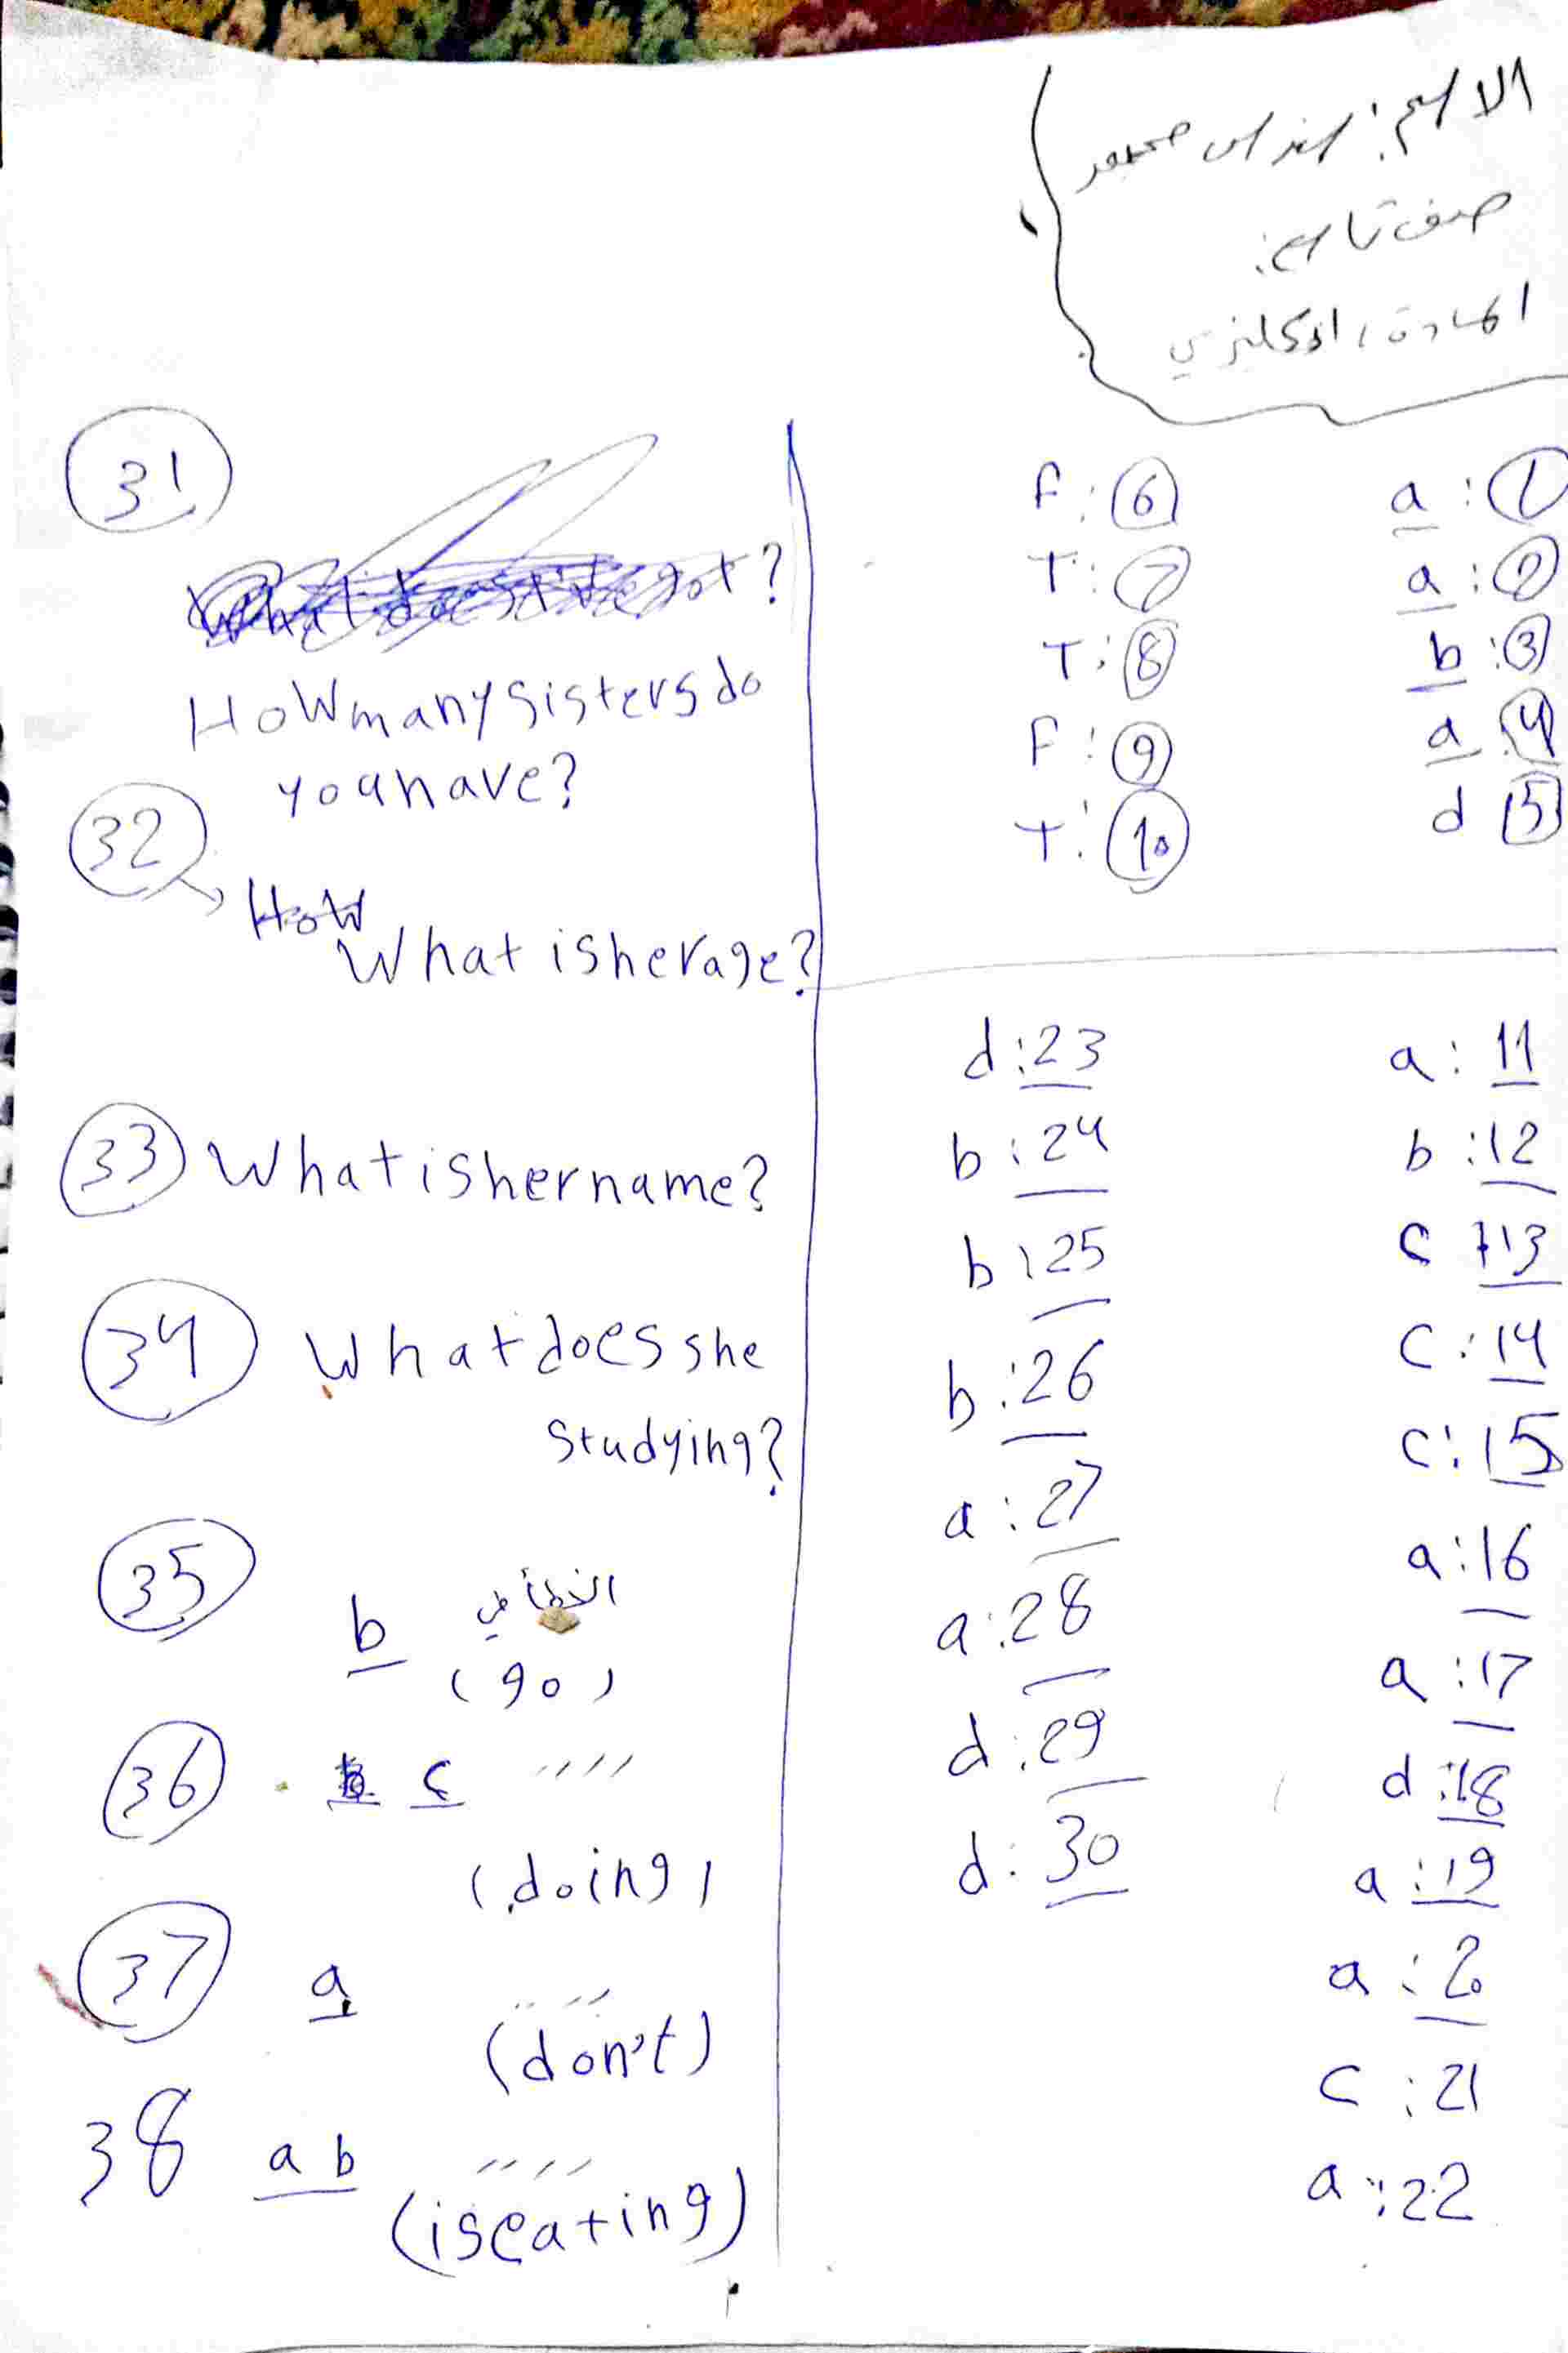 الاسم: محمود
صف تاسع:
المادة: الانكليزي
a : 1
a : 2
b : 3
a : 4
d 5
F : 6
T : 7
T : 8
F : 9
T : 10
a : 11
b : 12
c : 13
c : 14
c : 15
a : 16
a : 17
d : 18
a : 19
a : 20
c : 21
a : 22
d : 23
b : 24
b : 25
b : 26
a : 27
a : 28
d : 29
d : 30
31
got?
How many sisters do
you have?
32
How
What is her age?
33 What is her name?
34 What does she
studying?
35 b الخطأ في
(go)
36 c ////
(doing)
37 a ////
(don't)
38 a b ////
(is eating)